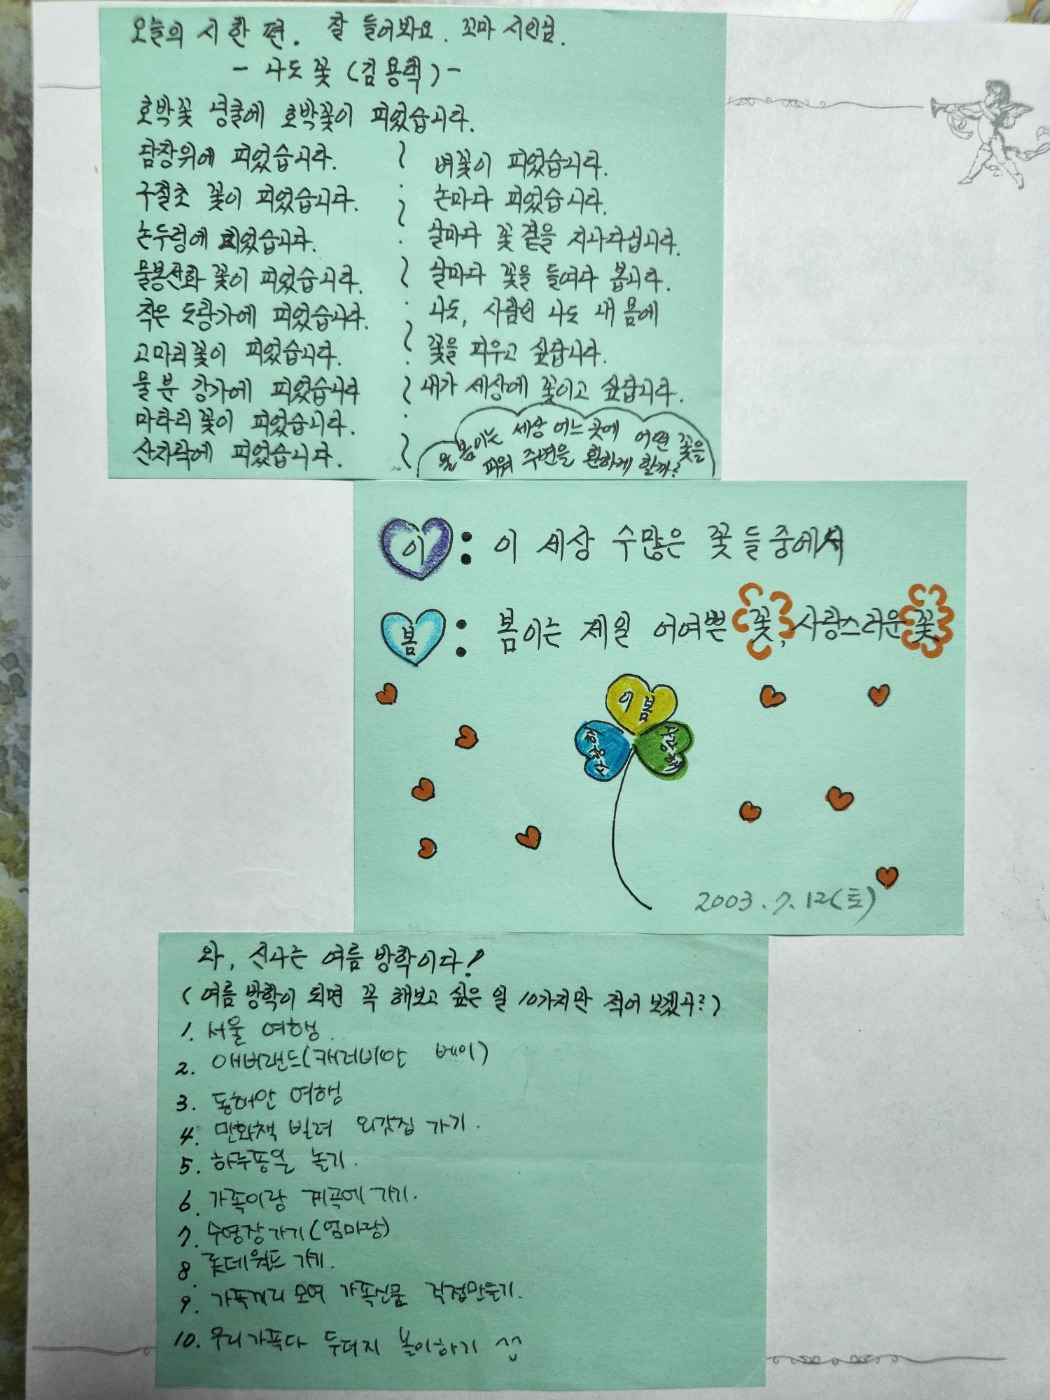 오늘의 시 한 편. 잘 들어봐요. 꼬마 시인님.
- 나도 꽃 (김용택) -
호박꽃 넝쿨에 호박꽃이 피었습니다.
담장위에 피었습니다.
구절초 꽃이 피었습니다.
논두렁에 피었습니다.
물봉선화 꽃이 피었습니다.
작은 도랑가에 피었습니다.
고마리꽃이 피었습니다.
물 분 강가에 피었습니다
마타리 꽃이 피었습니다.
산자락에 피었습니다.
벼꽃이 피었습니다.
논마다 피었습니다.
살마다 꽃 곁을 지나다닙니다.
살마다 꽃을 들여다 봅니다.
나도, 사람인 나도 내 몸에
꽃을 피우고 싶습니다.
내가 세상에 꽃이고 싶습니다.
봄이는 세상 어느 곳에 어떤 꽃을
피워 주변을 환하게 할까?
이 : 이 세상 수많은 꽃들 중에서
봄 : 봄이는 제일 어여쁜 꽃, 사랑스러운 꽃
이봄
2003. 7. 12 (토)
와, 신나는 여름 방학이다!
(여름 방학이 되면 꼭 해보고 싶은 일 10가지만 적어 보겠니?)
1. 서울 여행
2. 애버랜드(캐러비안 베이)
3. 동해안 여행
4. 만화책 빌려 외갓집 가기.
5. 하루종일 놀기.
6. 가족이랑 계곡에 가기.
7. 수영장 가기(엄마랑)
8. 롯데월드 가기.
9. 가족끼리 모여 가족선물 직접만들기.
10. 우리가족다 두더지 놀이하기 ^^